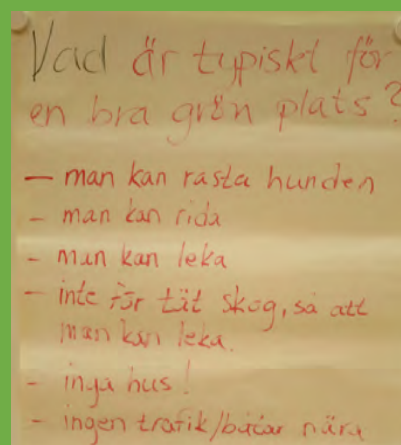 Vad är typiskt för
en bra grön plats?
- man kan rasta hunden
- man kan rida
- man kan leka
- inte för tät skog, så att
man kan leka.
- inga hus!
- ingen trafik/båtar nära